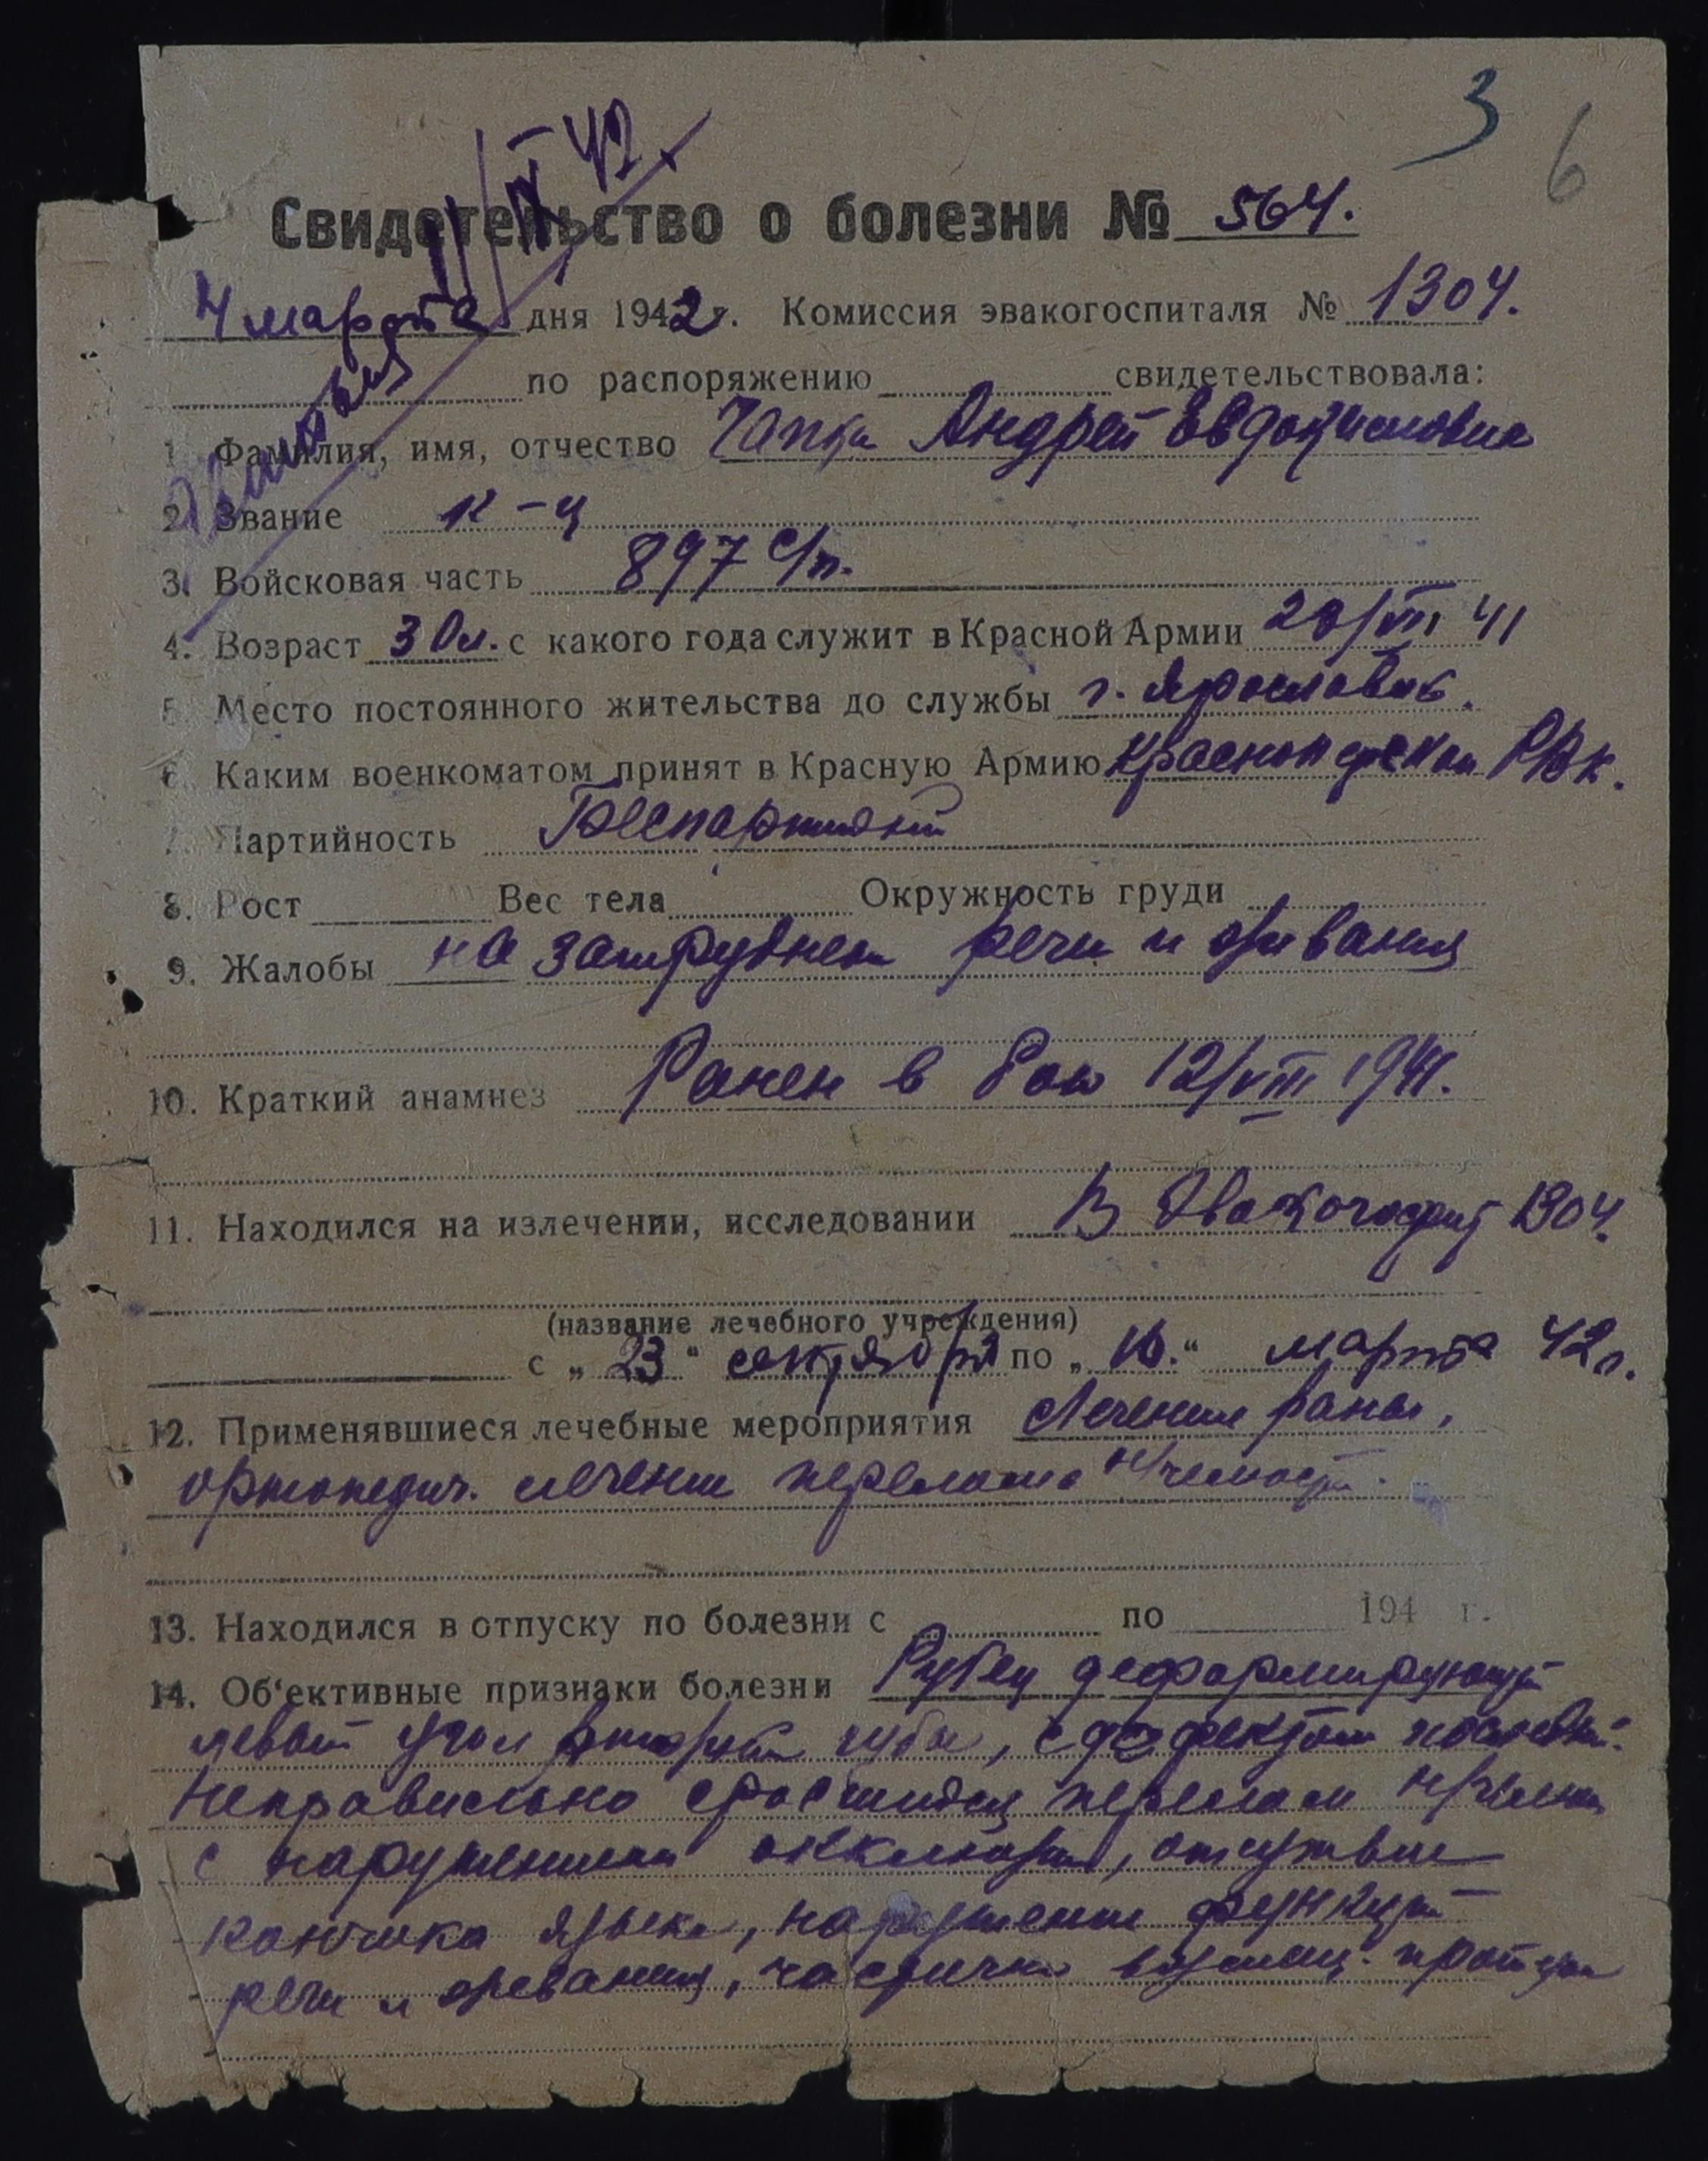 3
6
11/IX 42
Свидетельство о болезни № 564.
4 марта дня 1942 г. Комиссия эвакогоспиталя № 1304.
по распоряжению свидетельствовала:
1. Фамилия, имя, отчество Чапка Андрей Евдокимович
2. Звание к-ц
3. Войсковая часть 897 с/п.
4. Возраст 30 л. с какого года служит в Красной Армии 20/VII 41
5. Место постоянного жительства до службы г. Ярославль.
6. Каким военкоматом принят в Красную Армию РВК.
7. Партийность Беспартийный
8. Рост Вес тела Окружность груди
9. Жалобы на затруднен речи и жевания
10. Краткий анамнез Ранен в бою 12/VIII 1941.
11. Находился на излечении, исследовании В Эвакогоспит 1304.
(название лечебного учреждения)
с „23“ сентября по „10.“ марта 42 г.
12. Применявшиеся лечебные мероприятия Лечение раны,
ортопедич. лечение перелома н/челюсти.
13. Находился в отпуску по болезни с по 194 г.
14. Об'ективные признаки болезни Рубец деформирующий
левый угол губы, с дефектом
Неправильно сросшийся перелом н/челюсти
с нарушением окклюзии, отсутствие
кончика языка, нарушение функций
речи и жевания, частично